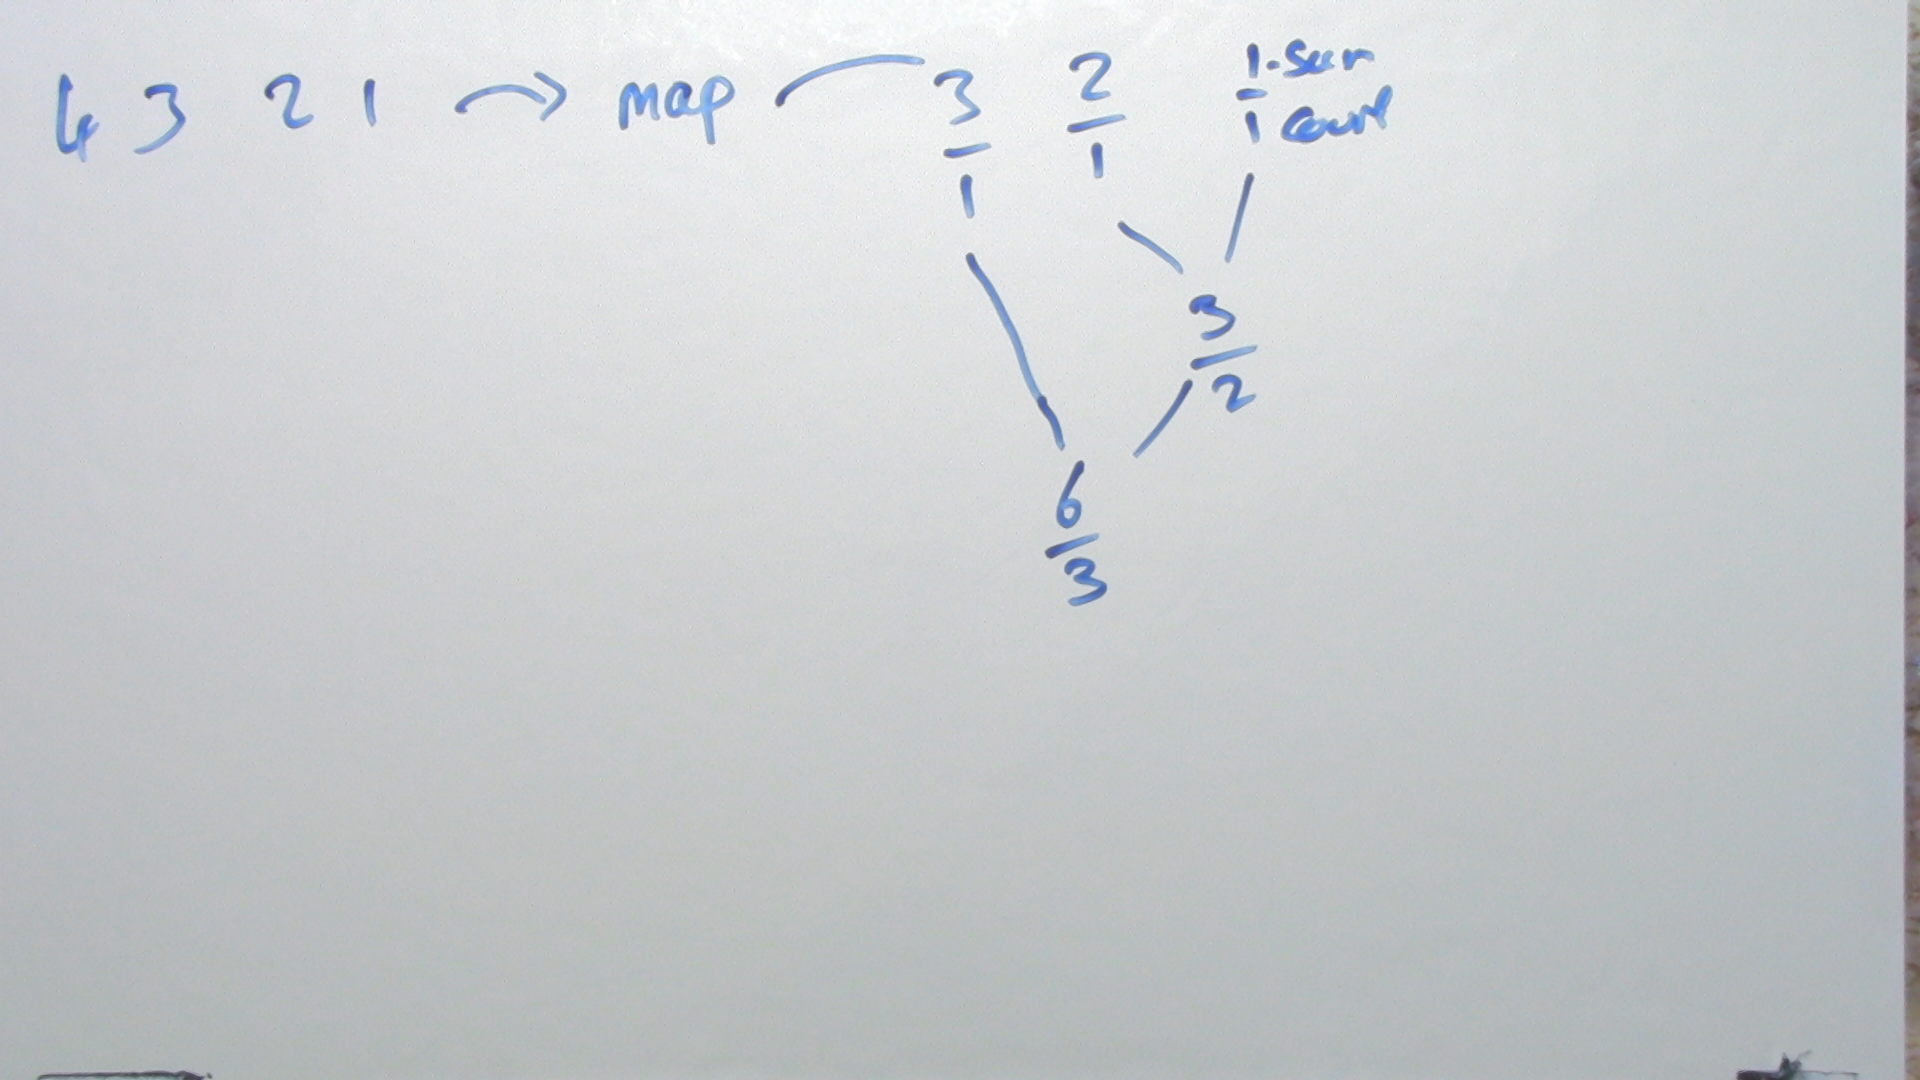 4 3 2 1 → map 3/1 2/1 1/1 - sum count
3/2
6/3